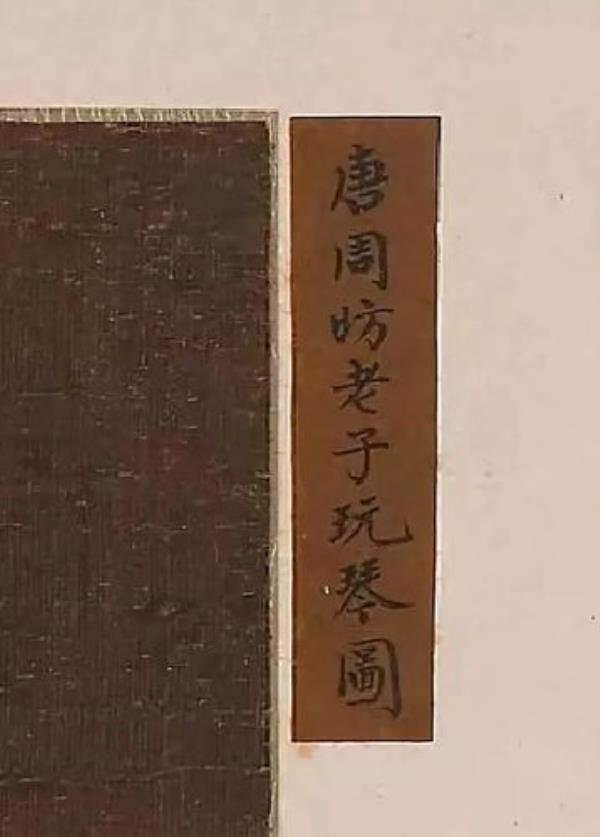 唐周昉老子玩琴圖